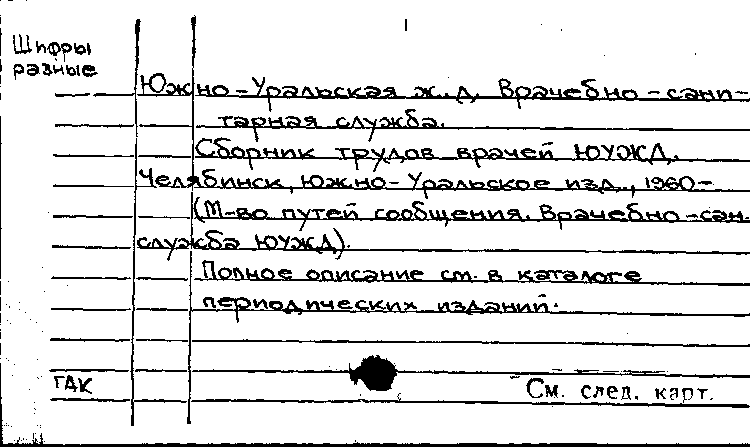 Шифры
разные
Южно-Уральская ж.д. Врачебно-сани-
тарная служба.
Сборник трудов врачей ЮУЖД.
Челябинск, Южно-Уральское изд., 1960-
(М-во путей сообщения. Врачебно-сан.
служба ЮУЖД).
Полное описание см. в каталоге
периодических изданий.
ГАК
См. след. карт.